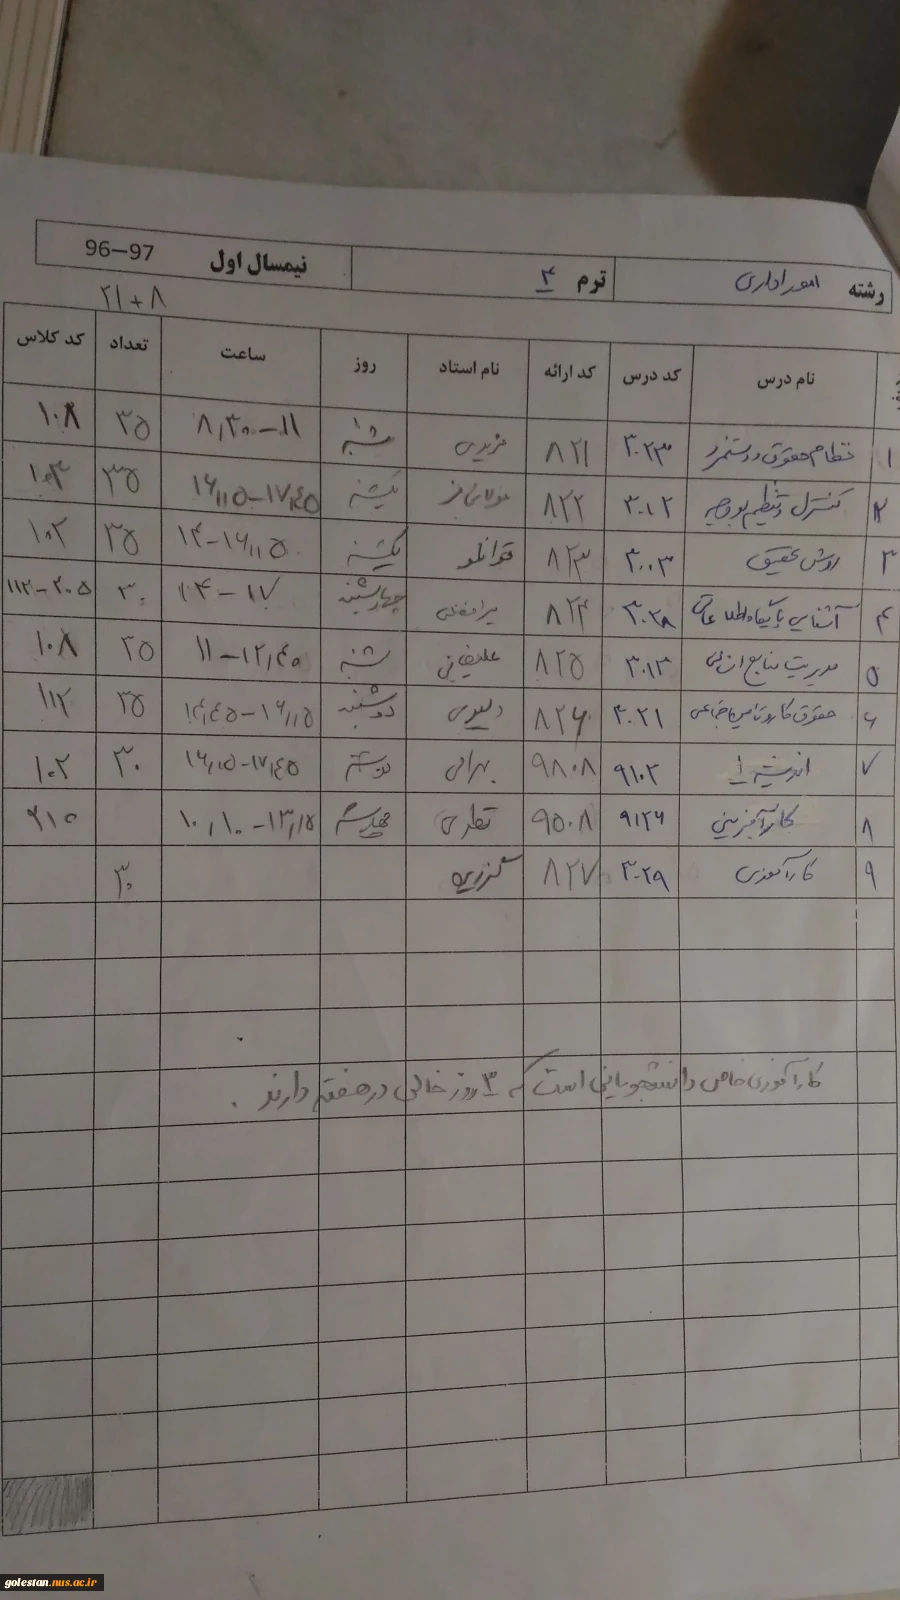 رشته امور اداری ترم ۴ نیمسال اول 96-97
۲۱+۸
نام درس کد درس کد ارائه نام استاد روز ساعت تعداد کد کلاس
۱ نظام حقوق و دستمزد ۳۰۲۳ ۸۲۱ شنبه ۸,۳۰-۱۱ ۳۵ ۱۰۸
۲ کنترل و تنظیم بودجه ۳۰۱۲ ۸۲۲ یکشنبه ۱۶,۱۵-۱۷,۴۵ ۳۵ ۱۰۳
۳ روش تحقیق ۳۰۰۳ ۸۲۳ قوانلو یکشنبه ۱۴-۱۶,۱۵ ۳۵ ۱۰۲
۴ آشنایی با پایگاه اطلاعاتی ۳۰۲۸ ۸۲۴ میرافضلی چهارشنبه ۱۴-۱۷ ۳۰ ۱۱۲-۲۰۵
۵ مدیریت منابع انسانی ۳۰۱۳ ۸۲۵ شنبه ۱۱-۱۲,۴۰ ۲۵ ۱۰۸
۶ حقوق کار و تامین اجتماعی ۳۰۲۱ ۸۲۶ دوشنبه ۱۴,۴۵-۱۶,۱۵ ۳۵ ۱۱۲
۷ اندیشه ۱ ۹۱۰۲ ۹۸۰۸ بهرامی دوشنبه ۱۶,۱۵-۱۷,۴۵ ۳۰ ۱۰۲
۸ کارآفرینی ۹۱۲۶ ۹۵۰۸ نظری چهارشنبه ۱۰,۱۰-۱۳,۱۵ ۲۱۵
۹ کارآموزی ۳۰۲۹ ۸۲۷ ۳۰
کارآموزی خاص دانشجویانی است که ۳ روز خالی در هفته دارند .
golestan.nus.ac.ir